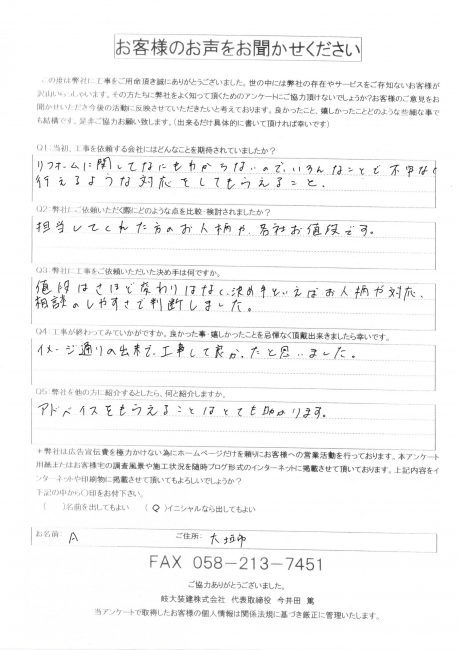 お客様のお声をお聞かせください
この度は弊社に工事をご用命頂き誠にありがとうございました。世の中には弊社の存在やサービスをご存知ないお客様が
沢山いらっしゃいます。その方たちに弊社をよく知って頂くためのアンケートにご協力頂けないでしょうか?お客様のご意見をお
聞かせいただき今後の活動に反映させていただきたいと考えております。良かったこと、嬉しかったことどのような些細な事で
も結構です。是非ご協力お願い致します。(出来るだけ具体的に書いて頂ければ幸いです)
Q1:当初、工事を依頼する会社にはどんなことを期待されていましたか?
リフォームに関してなにもわからないので、いろんなことで不安なく
行えるような対応をしてもらえること、
Q2:弊社にご依頼いただく際にどのような点を比較・検討されましたか?
担当してくれた方のお人柄や、各社お値段です。
Q3:弊社に工事をご依頼いただいた決め手は何ですか。
値段はさほど変わりはなく、決め手といえばお人柄や対応、
相談のしやすさで判断しました。
Q4:工事が終わってみていかがですか。良かった事・嬉しかったことを忌憚なく頂戴出来きましたら幸いです。
イメージ通りの出来で、工事して良かったと思いました。
Q5:弊社を他の方に紹介するとしたら、何と紹介しますか。
アドバイスをもらえることはとても助かります。
*弊社は広告宣伝費を極力かけない為にホームページだけを頼りにお客様への営業活動を行っております。本アンケート
用紙またはお客様宅の調査風景や施工状況を随時ブログ形式のインターネットに掲載させて頂いております。上記内容をイ
ンターネットや印刷物に掲載させて頂いてもよろしいでしょうか?
下記の中から○印をお付下さい。
( )名前を出してもよい ( ○ )イニシャルなら出してもよい
お名前: A ご住所: 大垣市
FAX 058-213-7451
ご協力ありがとうございました。
岐大装建株式会社 代表取締役 今井田 篤
当アンケートで取得したお客様の個人情報は関係法規に基づき厳正に管理いたします。